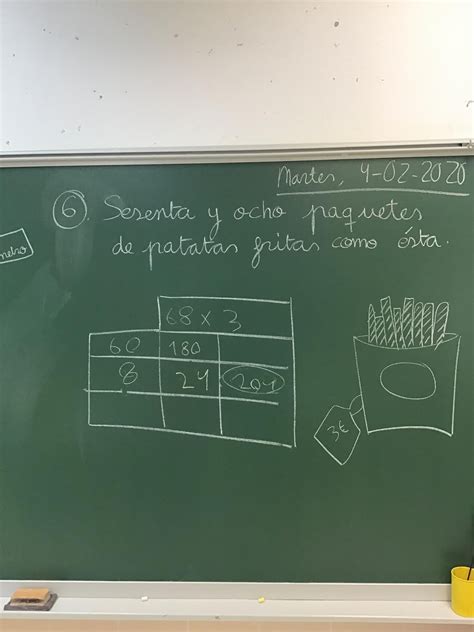 Martes, 4-02-2020
6. Sesenta y ocho paquetes
de patatas fritas como ésta.
68 x 3
60 180
8 24 204
3€